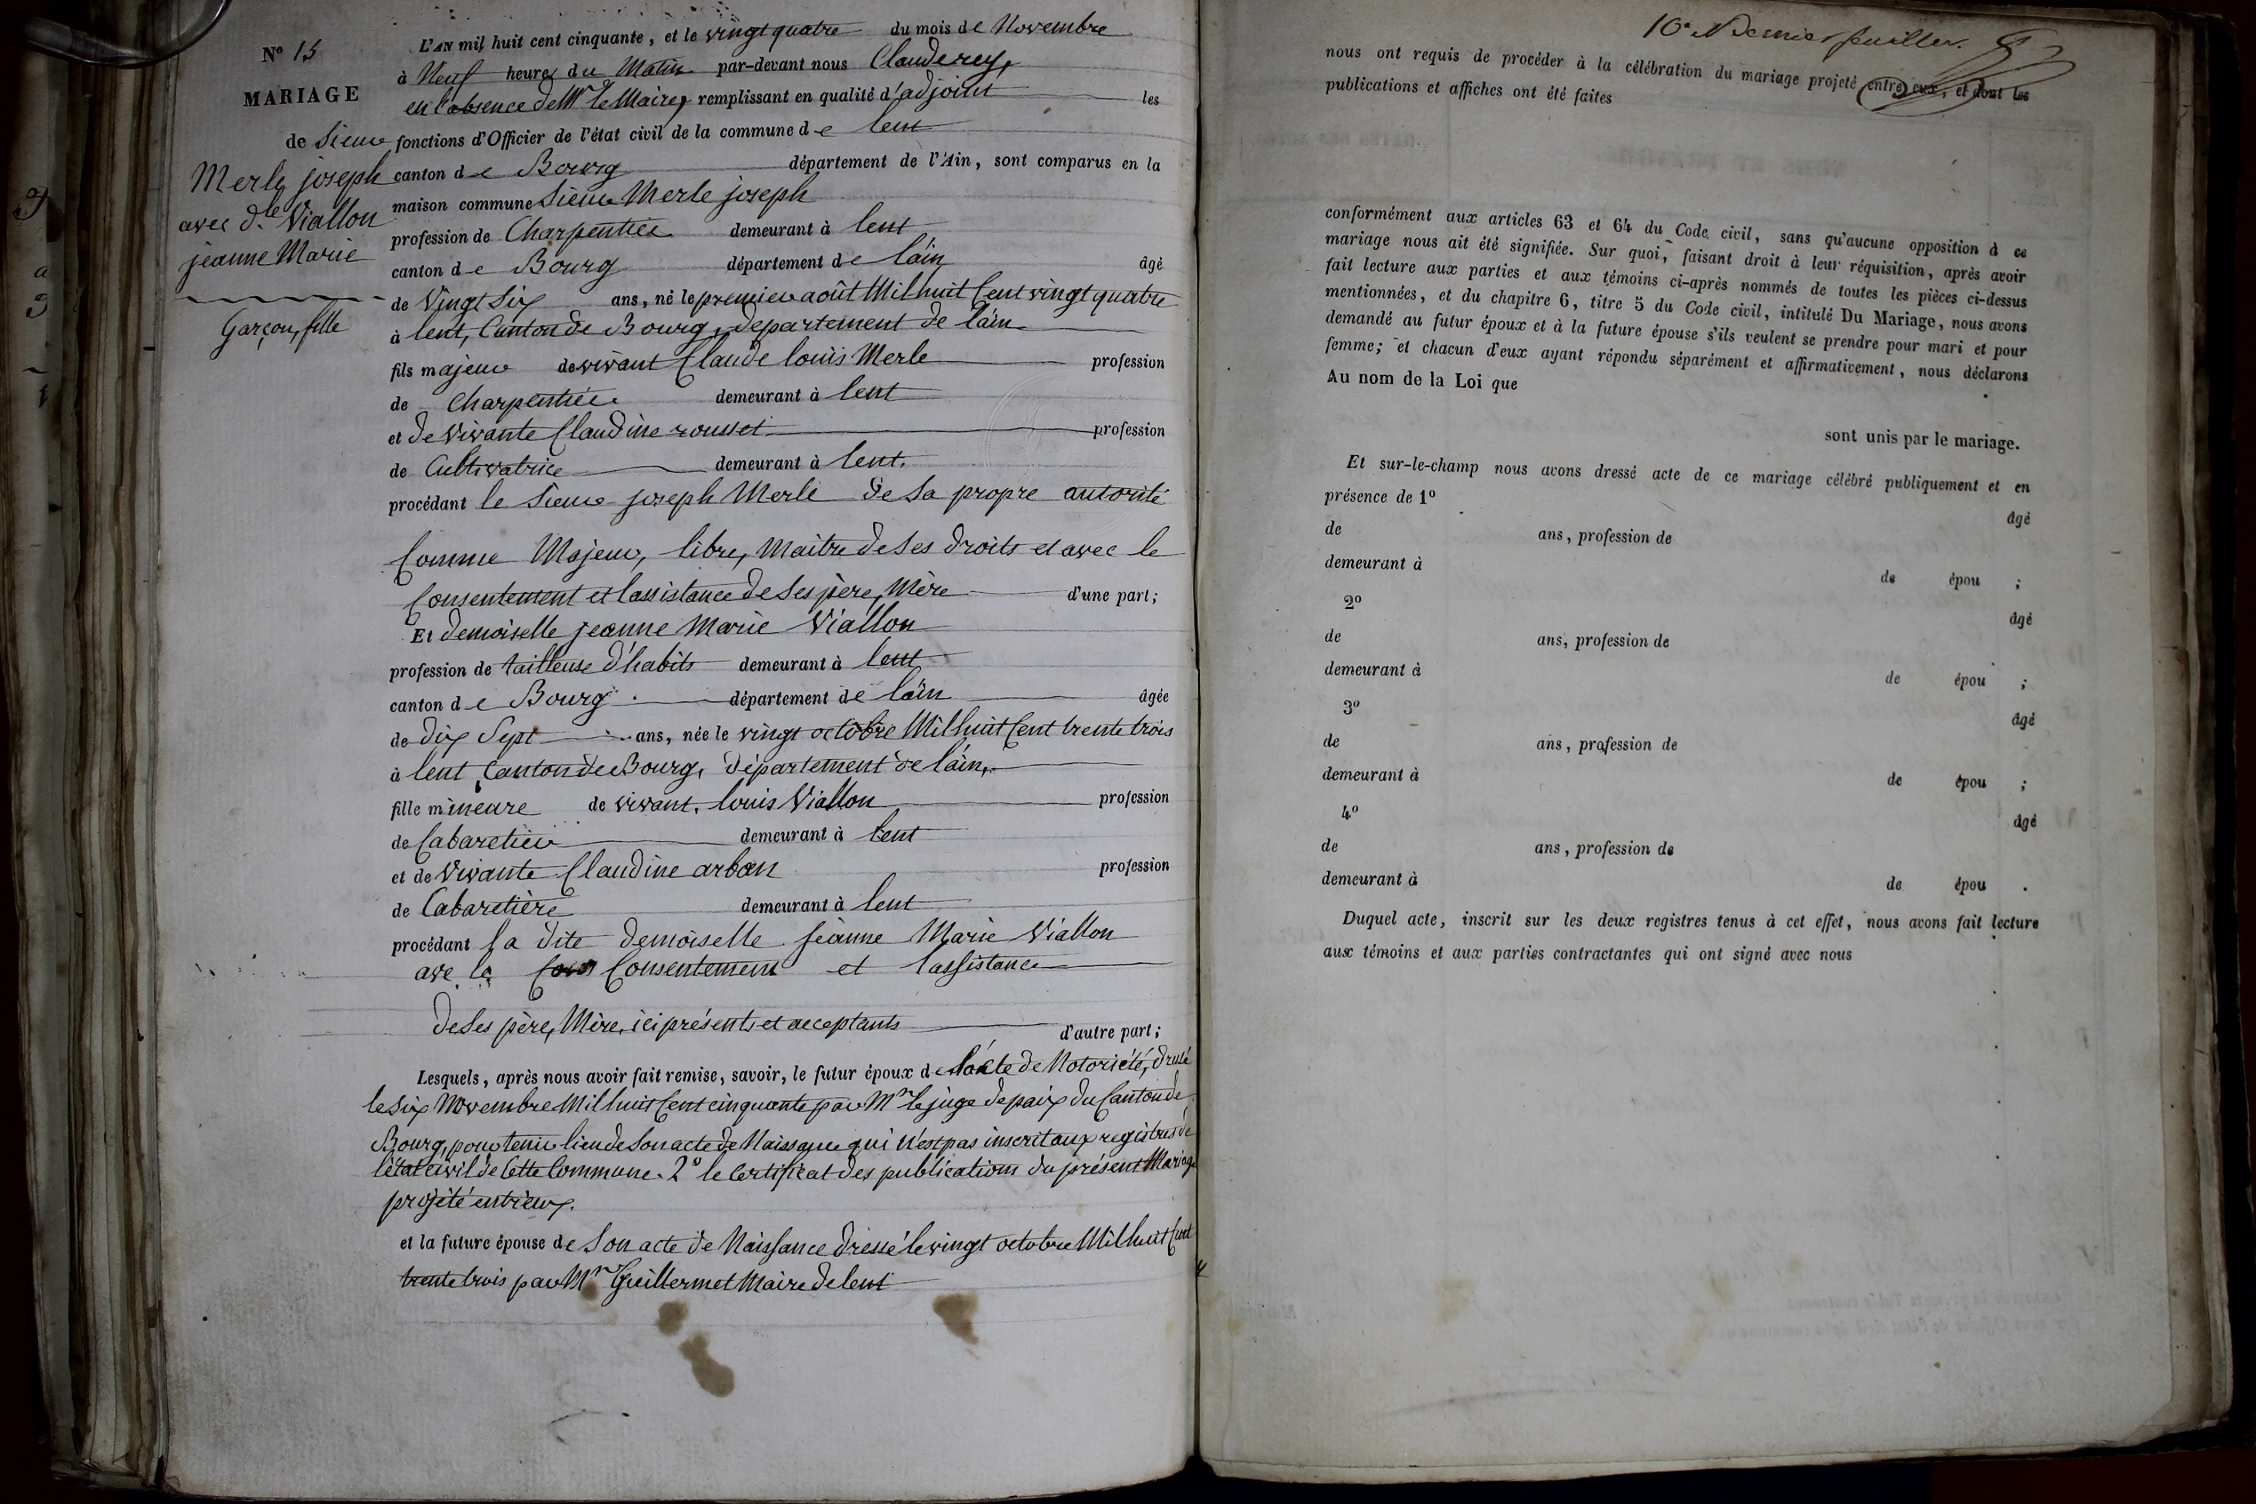 N° 15
MARIAGE
de Sieur
Merle joseph
avec dlle Viallon
jeanne Marie
Garçon, fille
L'AN mil huit cent cinquante, et le vingt quatre du mois de Novembre
à Neuf heures du Matin par-devant nous Claude rey,
en l'absence de Mr le Maire, remplissant en qualité d'adjoint les
fonctions d'Officier de l'état civil de la commune de lent
canton de Bourg département de l'Ain, sont comparus en la
maison commune Sieur Merle joseph
profession de Charpentier demeurant à lent
canton de Bourg département de l'ain âgé
de Vingt Six ans, né le premier août Mil huit Cent vingt quatre
à lent, Canton de Bourg, département de l'ain
fils majeur de vivant Claude louis Merle profession
de Charpentier demeurant à lent
et de Vivante Claudine rousset profession
de Cultivatrice demeurant à lent.
procédant le Sieur joseph Merle de Sa propre autorité
Comme Majeur, libre, Maitre de Ses droits et avec le
Consentement et l'assistance de Ses père, Mère d'une part;
Et demoiselle jeanne Marie Viallon
profession de tailleuse d'habits demeurant à lent
canton de Bourg département de l'ain âgée
de dix Sept ans, née le vingt octobre Mil huit Cent trente trois
à lent, Canton de Bourg, département de l'ain,
fille mineure de vivant, louis Viallon profession
de Cabaretier demeurant à lent
et de Vivante Claudine arban profession
de Cabaretière demeurant à lent
procédant la dite demoiselle jeanne Marie Viallon
ave le Consentement et l'assistance
de Ses père, Mère, ici présents et acceptants d'autre part;
Lesquels, après nous avoir fait remise, savoir, le futur époux de l'acte de Notoriété, dressé
le Six Novembre Mil huit Cent cinquante par Mr le juge de paix du Canton de
Bourg, pour tenir lieu de Son acte de Naissance qui N'est pas inscrit aux registres de
l'état civil de Cette Commune. 2° le Certificat des publications du présent Mariage
projeté entr'eux.
et la future épouse de Son acte de Naissance dressé le vingt octobre Mil huit Cent
trente trois par Mr Guillermet Maire de lent
16e et Dernier feuillet.
nous ont requis de procéder à la célébration du mariage projeté entre eux, et dont les
publications et affiches ont été faites
conformément aux articles 63 et 64 du Code civil, sans qu'aucune opposition à ce
mariage nous ait été signifiée. Sur quoi, faisant droit à leur réquisition, après avoir
fait lecture aux parties et aux témoins ci-après nommés de toutes les pièces ci-dessus
mentionnées, et du chapitre 6, titre 5 du Code civil, intitulé Du Mariage, nous avons
demandé au futur époux et à la future épouse s'ils veulent se prendre pour mari et pour
femme; et chacun d'eux ayant répondu séparément et affirmativement, nous déclarons
Au nom de la Loi que
sont unis par le mariage.
Et sur-le-champ nous avons dressé acte de ce mariage célébré publiquement et en
présence de 1° âgé
de ans, profession de
demeurant à de épou ;
2° âgé
de ans, profession de
demeurant à de épou ;
3° âgé
de ans, profession de
demeurant à de épou ;
4° âgé
de ans, profession de
demeurant à de épou .
Duquel acte, inscrit sur les deux registres tenus à cet effet, nous avons fait lecture
aux témoins et aux parties contractantes qui ont signé avec nous